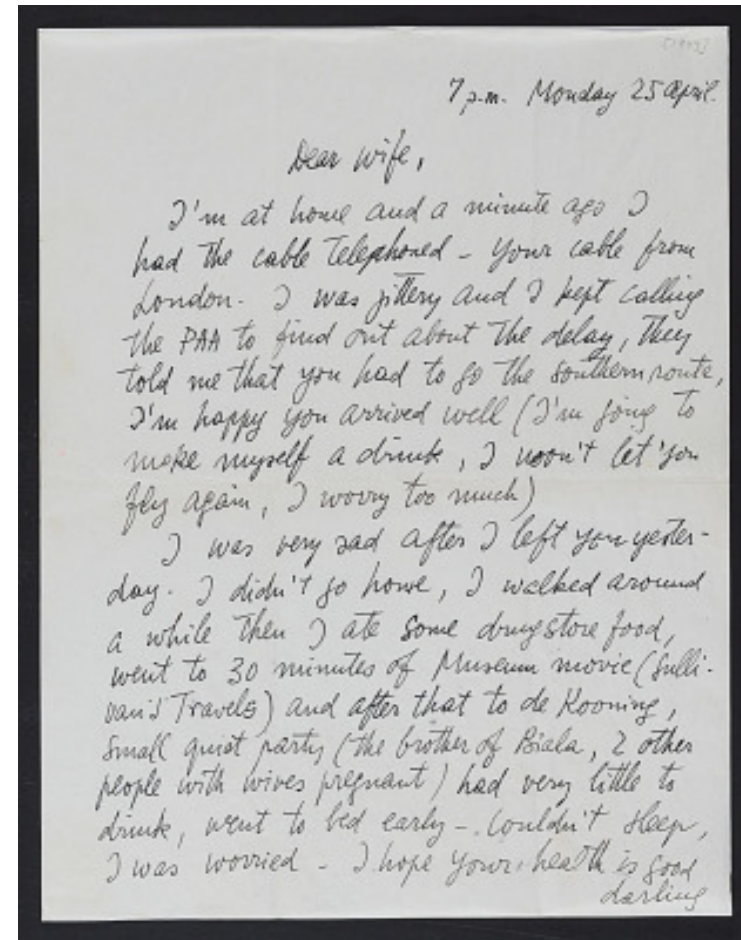 7 p.m. Monday 25 April.
Dear wife,
I'm at home and a minute ago I
had the cable telephoned - your cable from
London. I was jittery and I kept calling
the PAA to find out about the delay, they
told me that you had to go the southern route,
I'm happy you arrived well (I'm going to
make myself a drink, I won't let you
fly again, I worry too much)
I was very sad after I left you yester-
day. I didn't go home, I walked around
a while then I ate some drugstore food,
went to 30 minutes of Museum movie (Sulli-
van's Travels) and after that to de Kooning,
small quiet party (the brother of Biala, 2 other
people with wives pregnant) had very little to
drink, went to bed early - couldn't sleep,
I was worried - I hope your health is good
darling